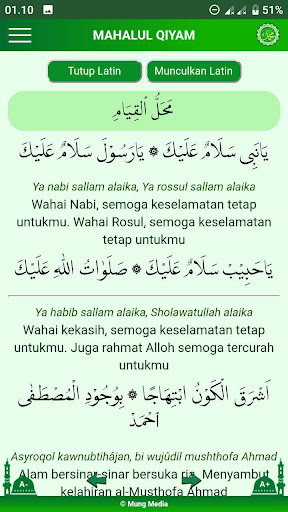 01.10
51%
MAHALUL QIYAM
Tutup Latin
Munculkan Latin
مَحَلُّ اْلقِيَامِ
يَانَبِى سَلَامٌ عَلَيْكَ ۞ يَارَسُوْلَ سَلَامٌ عَلَيْكَ
Ya nabi sallam alaika, Ya rossul sallam alaika
Wahai Nabi, semoga keselamatan tetap
untukmu. Wahai Rosul, semoga keselamatan
tetap untukmu
يَاحَبِيْبَ سَلَامٌ عَلَيْكَ ۞ صَلَوَاتُ اللهِ عَلَيْكَ
Ya habib sallam alaika, Sholawatullah alaika
Wahai kekasih, semoga keselamatan tetap
untukmu. Juga rahmat Alloh semoga tercurah
untukmu
اَشْرَقَ الْكَوْنُ ابْتِهَاجًا ۞ بِوُجُوْدِ الْمُصْطَفٰى
اَحْمَدْ
Asyroqol kawnubtihâjan, bi wujûdil mushthofa Ahmad
Alam bersinar-sinar bersuka ria. Menyambut
kelahiran al-Musthofa Ahmad
A-
A+
© Mung Media